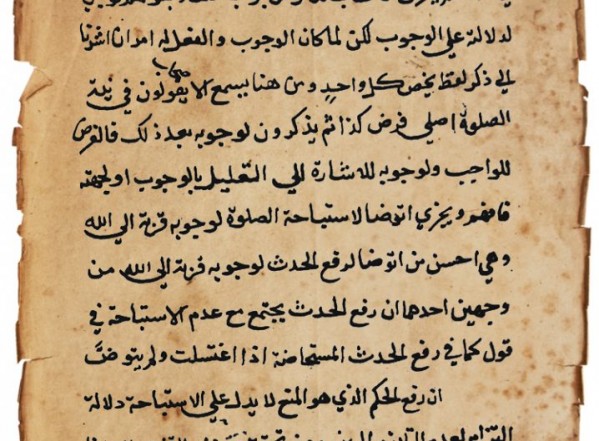 لدلالته علي الوجوب لكن لما كان الوجوب والفعل له امران اشرنا
الي ذكر لفظ يخص كل واحد ومن هنا يسمع الاصحاب يقولون في نية
الصلوة اصلي فرض كذا ثم يذكرون لوجوبه بعد ذلك فالفرض
للواجب ولوجوبه للاشارة الي التعليل بالوجوب او لجهته
فافهم ويجزي اتوضا لاستباحة الصلوة لوجوبه قربة الي الله
وهي احسن من اتوضا لرفع الحدث لوجوبه قربة الي الله من
وجهين احدهما ان رفع الحدث يجتمع مع عدم الاستباحة في
قول كما في رفع الحدث المستحاضة اذا اغتسلت ولم يتوضأ
ان رفع الحكم الذي هو المنع لا يدل علي الاستباحة دلالة